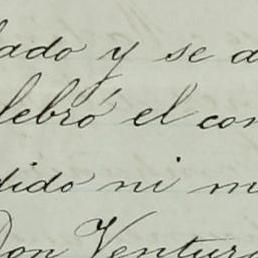 lado y se a
lebró el con
dido ni m
Don Ventura